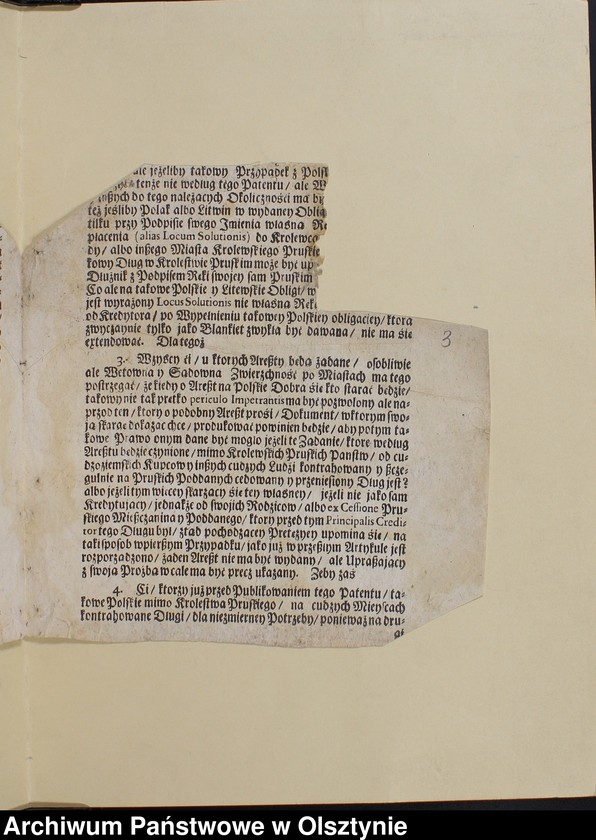 ale jeżeliby takowy Przypadek z Polsk
tenże nie według tego Patentu / ale W
inßych do tego należących Okoliczności ma by
też jeśliby Polak albo Litwin w wydaney Oblig
tilku przy Podpisie swego Imienia własna Re
płacenia (alias Locum Solutionis) do Krolewca
dy / albo inßego Miasta Krolewskiego Pruskie
kowy Dług w Krolestwie Pruskim może być up
Dłużnik z Podpisem Reki swojey sam Pruskim
Co ale na takowe Polskie y Litewskie Obligi / w
jest wyrażony Locus Solutionis nie własna Reki
od Kredytora / po Wypełnieniu takowey Polskiey obligaciey / ktora
zwyczaynie tylko jako Blankiet zwykła być dawana / nie ma sie
extendować. Dla tegoż
3. Wßyscy ci / u ktorych Areßty beda żadane / osobliwie
ale Wetowna y Sadowna Zwierzchność po Miastach ma tego
postrzegać / że kiedy o Areßt na Polskie Dobra sie kto starać bedzie /
takowy nie tak pretko periculo Impetrantis ma być pozwolony ale na-
przod ten / ktory o podobny Areßt prosi / Dokument / w ktorym swo-
ja skarge dokazać chce / produkować powinien bedzie / aby potym ta-
kowe Prawo onym dane być mogło jeżeli te Zadanie / ktore według
Areßtu bedzie czynione / mimo Krolewskich Pruskich Panstw / od cu-
dzoziemskich Kupcow y inßych cudzych Ludźi kontrahowany y ßcze-
gulnie na Pruskich Poddanych cedowany y przeniesiony Dług jest?
albo jeżeli tym wiecey skarżacy sie tey własney / jeżeli nie jako sam
Kredytujacy / jednakże od swojich Rodzicow / albo ex Cessione Pru-
skiego Mießczanina y Poddanego / ktory przed tym Principalis Credi-
tor tego Długu był / ztad pochodzacey Pretezyey upomina sie / na
taki sposob w pierßym Przypadku / jako już w przeßłym Artykule jest
rozporzadzono / żaden Areßt nie ma być wydany / ale Upraßajacy
z swoja Prozba wcale ma być precz ukazany. Zeby zaś
4. Ci / ktorzy już przed Publikowaniem tego Patentu / ta-
kowe Polskie mimo Krolestwa Pruskiego / na cudzych Mieyscach
kontrahowane Długi / dla niezmierney Potrzeby / ponieważ na dru-
gi
3
Archiwum Państwowe w Olsztynie